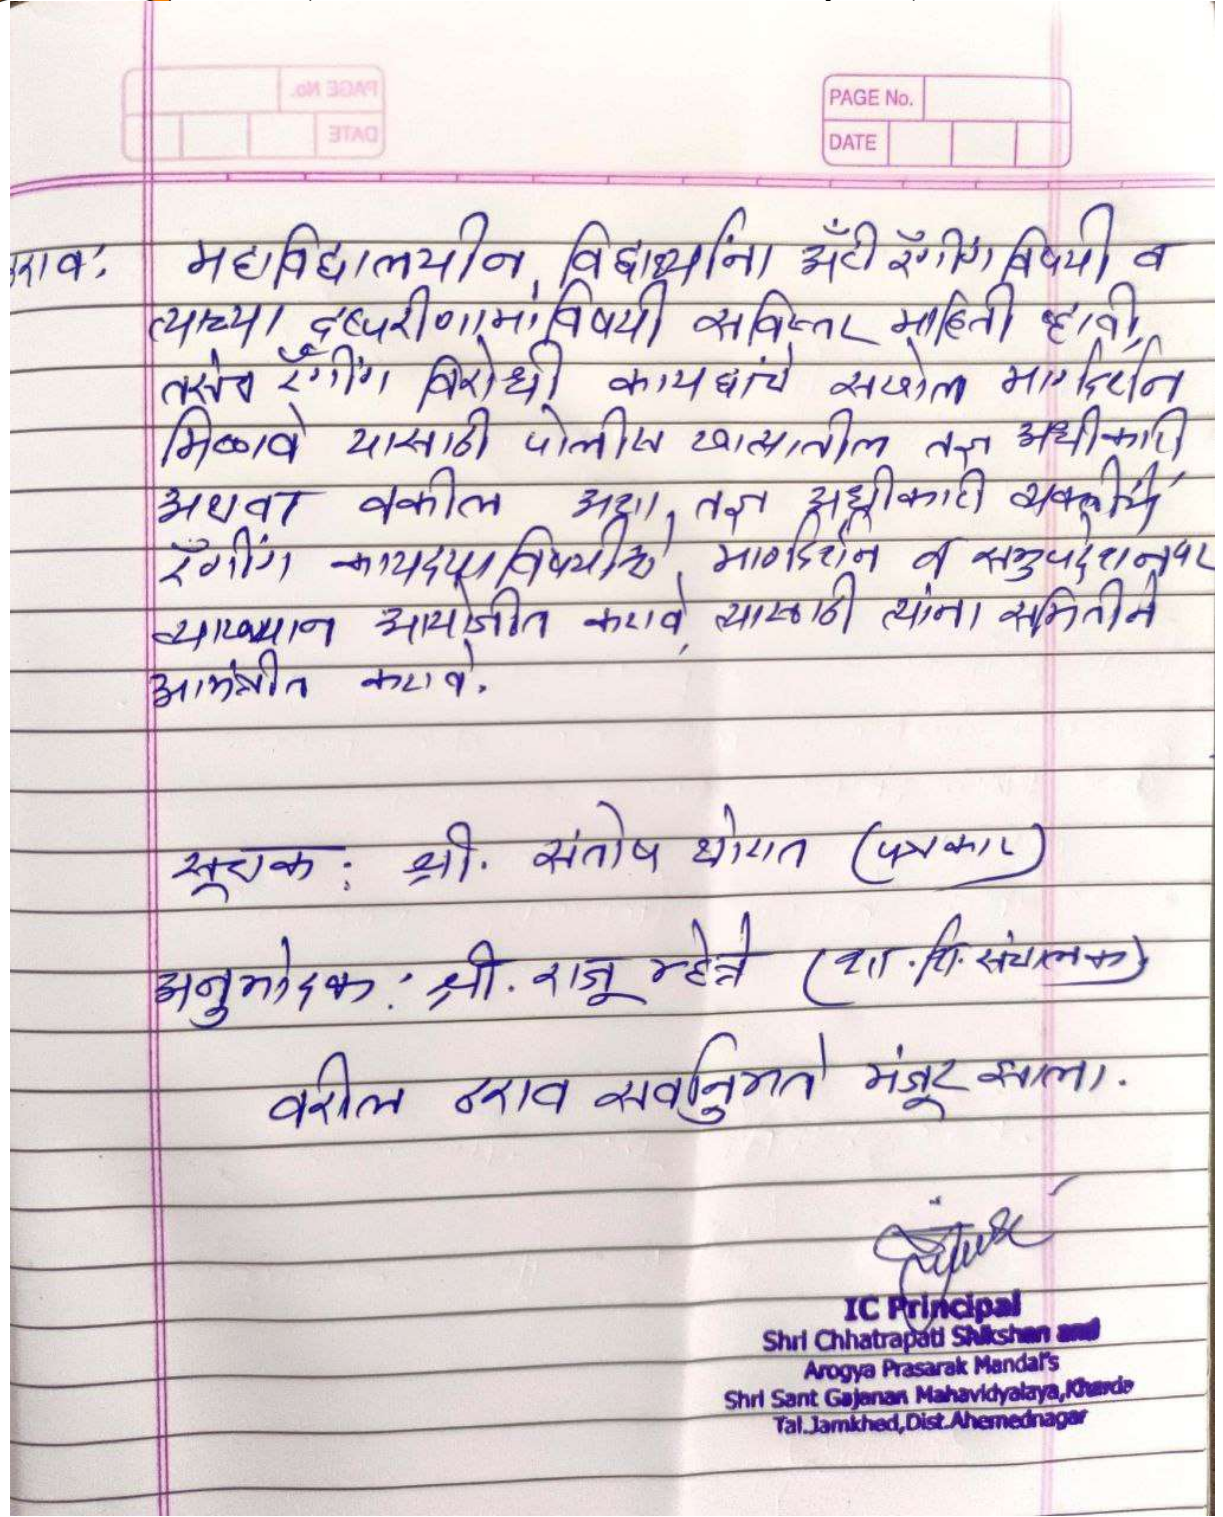 PAGE No.
DATE
ठराव: महाविद्यालयीन विद्यार्थ्यांना अँटी रॅगींग विषयी व
त्याच्या दुष्परीणामांविषयी सविस्तर माहिती व्हावी,
तसेच रॅगींग विरोधी कायद्यांचे सखोल मार्गदर्शन
मिळावे यासाठी पोलीस खात्यातील तज्ञ अधीकारी
अथवा वकील अशा तज्ञ अधीकारी व्यक्तींचे
रॅगींग कायद्याविषयीचे मार्गदर्शन व समुपदेशनपर
व्याख्यान आयोजीत करावे, त्यासाठी त्यांना समितीने
आमंत्रीत करावे.
सूचक: श्री. संतोष थोरात (पत्रकार)
अनुमोदक: श्री. राजू म्हेत्रे (शा.शि.संचालक)
वरील ठराव सर्वानुमते मंजूर झाला.
IC Principal
Shri Chhatrapati Shikshan and
Arogya Prasarak Mandal's
Shri Sant Gajanan Mahavidyalaya,Kharda
Tal.Jamkhed,Dist.Ahemednagar